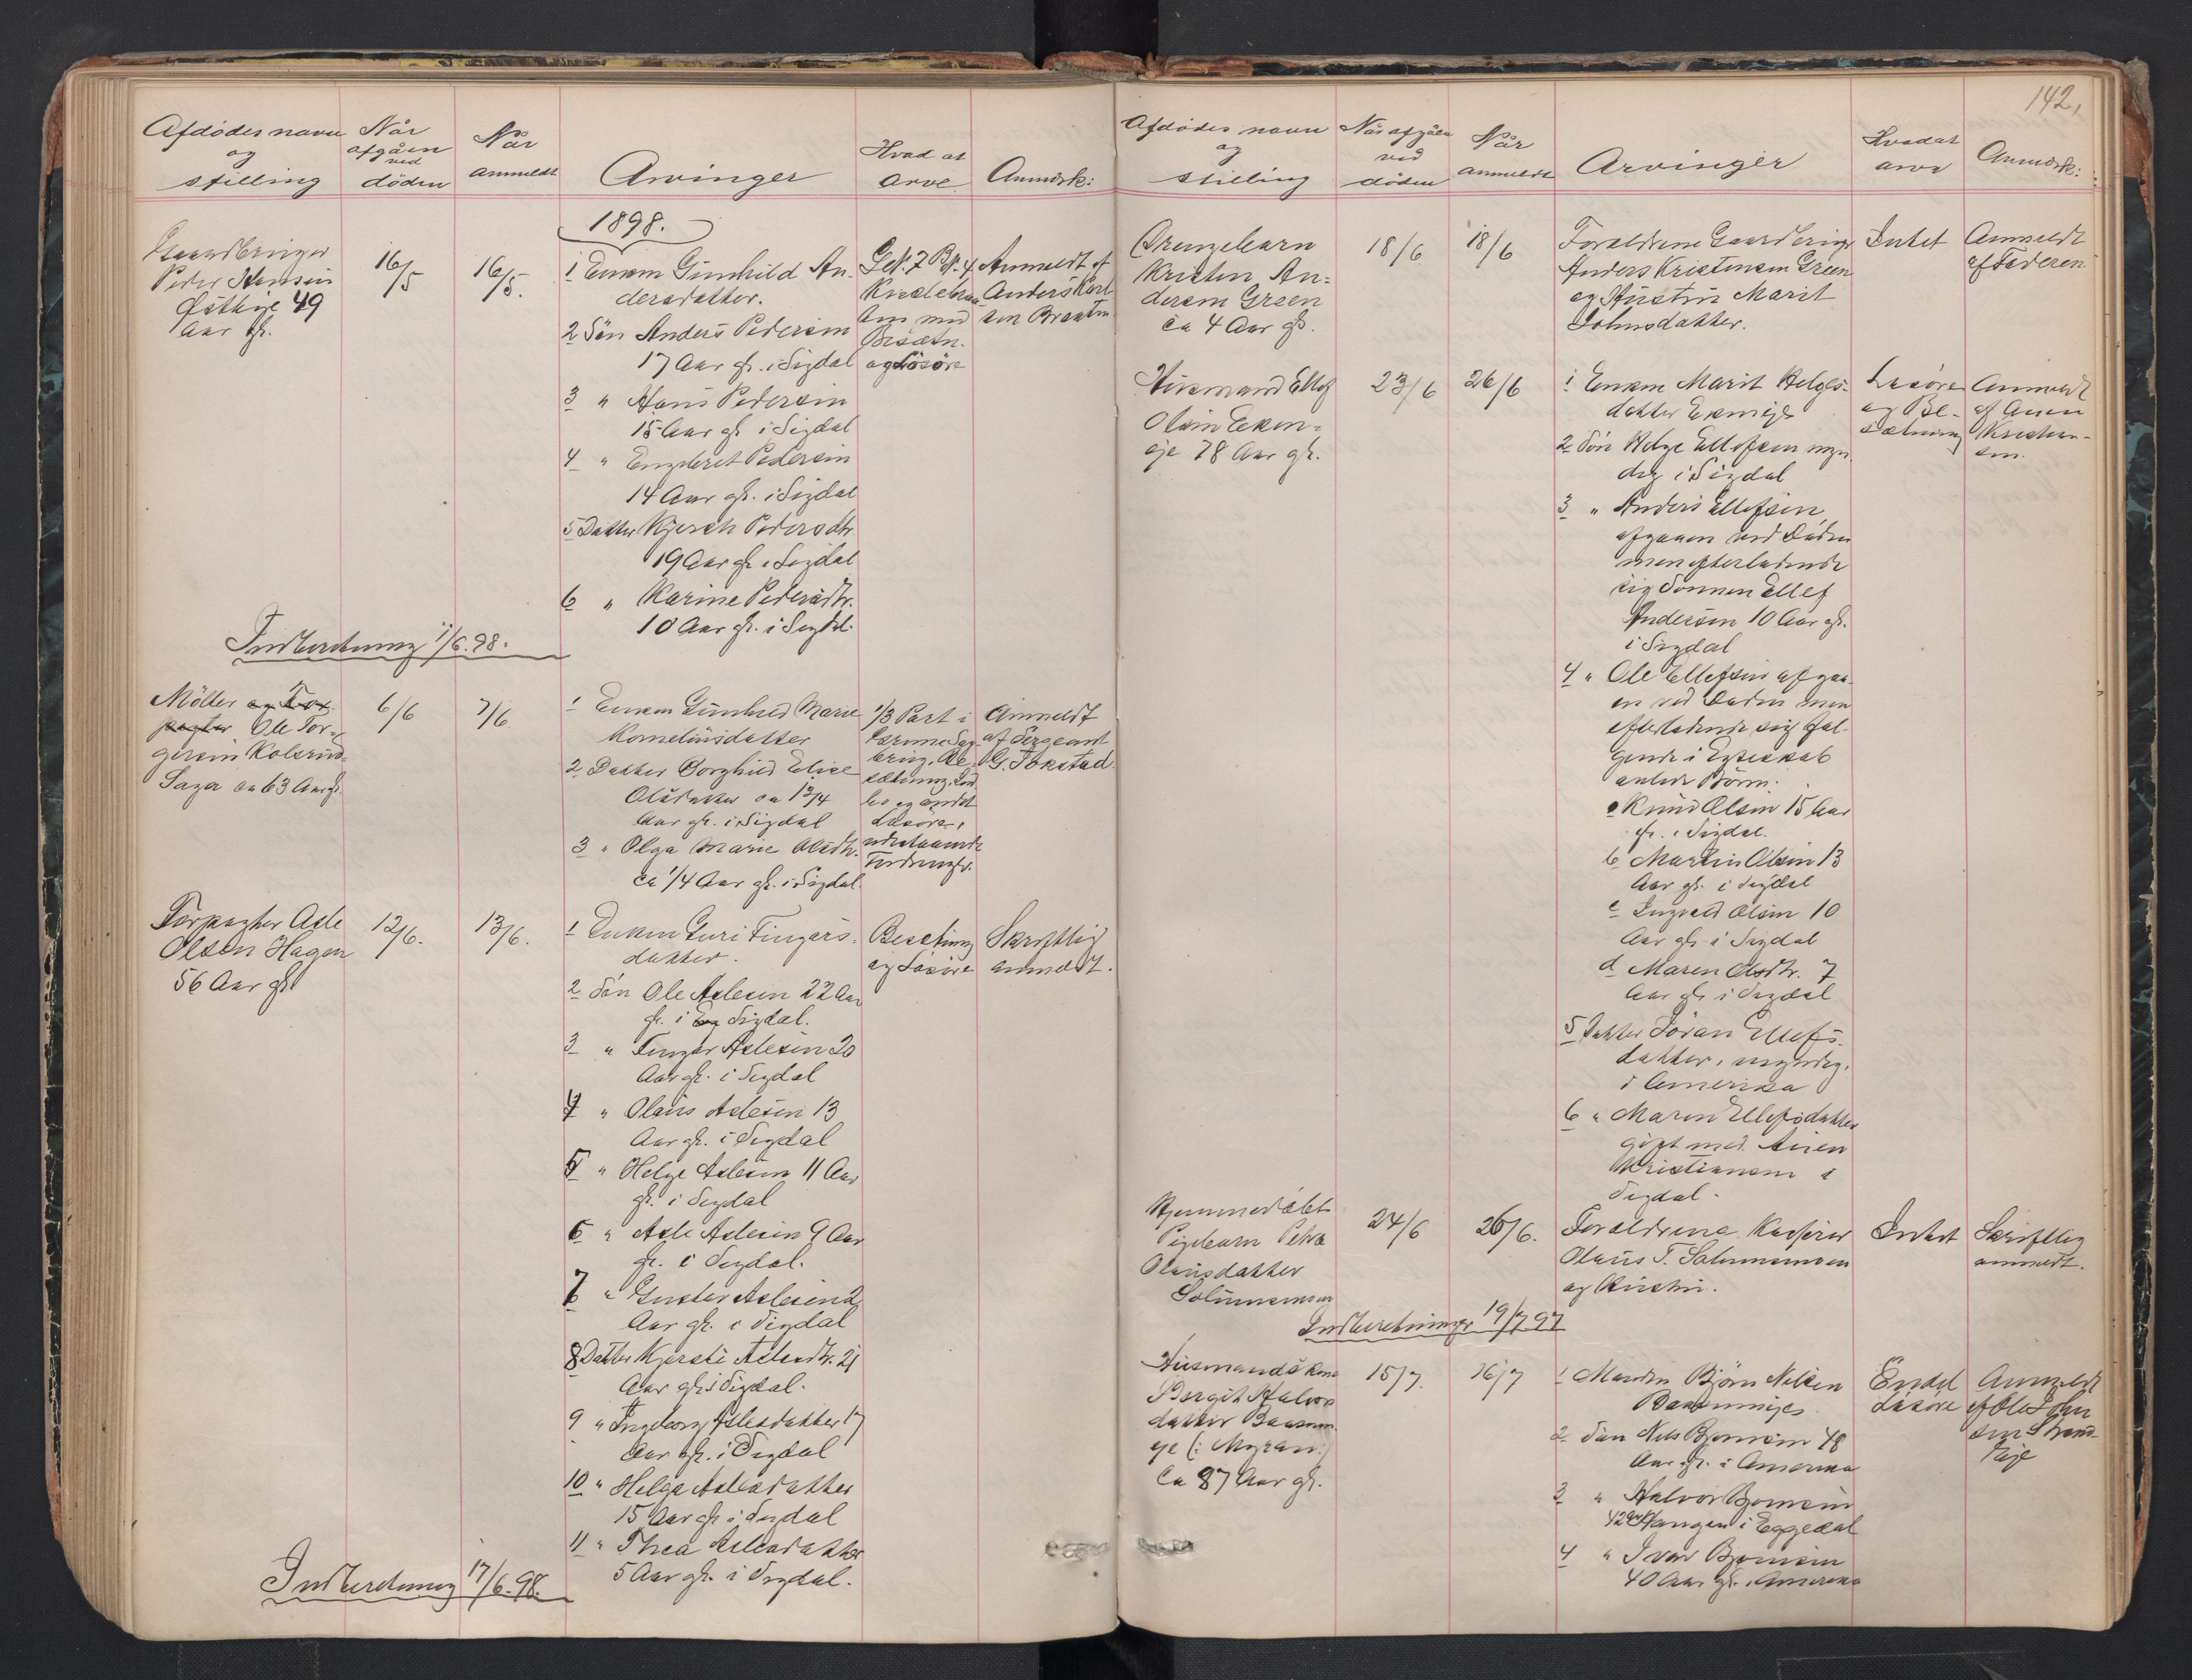 142,
Afdödes navn og stilling
Når afgåen ved döden
Når anmeldt
Arvinger
Hvad at arve
Anmærk:
1898.
Gaardbruger
Peder Hansen
49
Aar gl.
16/5
16/5.
1 Enken Gunhild An-
dersdatter.
2 Sön Anders Pedersen
17 Aar gl. i Sigdal
3 " Hans Pedersen
15 Aar gl. i Sigdal
4 " Engebret Pedersen
14 Aar gl. i Sigdal
5 Datter Kjersti Pedersdtr.
19 Aar gl. i Sigdal
6 " Karine Pedersdtr.
10 Aar gl. i Sigdal.
G.N. 7 B.N. 4
med
Besætn.
og Lösöre
Anmeldt af
Anders
sen Braaten
Indberetning 1/6.98.
Möller og For-
pagter Ole Tor-
gersen Kolsrud
Saga ca 63 Aar gl.
6/6
7/6
1 Enken Gunhild Marie
Korneliusdatter
2 Datter Borghild Elise
Olsdatter ca 1 3/4
Aar gl. i Sigdal
3 " Olga Marie Olsdtr.
ca 1/4 Aar gl. i Sigdal.
1/3 Part i
sætning,
bo og andet
Lösöre,
udestaaende
Fordringer.
Anmeldt
af Sergeant
G. Fokstad.
Forpagter Asle
Olsen Hagen
56 Aar gl.
12/6.
13/6.
1 Enken Guri Fingars-
datter.
2 Sön Ole Aslesen 22 Aar
gl. i Eg Sigdal.
3 " Fingar Aslesen 20
Aar gl. i Sigdal
4 " Olaus Aslesen 13
Aar gl. i Sigdal
5 " Helge Aslesen 11 Aar
gl. i Sigdal
6 " Asle Aslesen 9 Aar
gl. i Sigdal.
7 " Gustav Aslesen 2
Aar gl. i Sigdal
8 Datter Kjersti Aslesdtr. 21
Aar gl. i Sigdal.
9 " Ingeborg Aslesdatter 17
Aar gl. i Sigdal
10 " Helga Aslesdatter
15 Aar gl. i Sigdal
11 " Thea Aslesdatter
5 Aar gl. i Sigdal.
Besetning
og Lösöre
Skriftlig
anmeldt.
Indberetning 17/6.98.
Afdödes navn og stilling
Når afgåen ved döden
Når anmeldt
Arvinger
Hvadat arve
Anmærk:
Drengebarn
Kristen An-
dersen Green
ca 4 Aar gl.
18/6
18/6
Foraldrene Gaardbruger
Anders Kristensen Green
og Hustru Marit
Johnsdatter.
Intet
Anmeldt
af Faderen
Husmand Ellef
Olsen Eken-
eje 78 Aar gl.
23/6
26/6
1 Enken Marit Helges-
datter Ekeneje
2 Sön Helge Ellefsen myn-
dig i Sigdal
3 " Anders Ellefsen,
afgaaen ved Döden
men efterladende
sig Sönnen Ellef
Andersen 10 Aar gl.
i Sigdal
4 " Ole Ellefsen afgaa-
en ved Döden men
efterladende sig föl-
gende i Egteskab
avlede Börn:
a Knud Olsen 15 Aar
gl. i Sigdal.
b Martin Olsen 13
Aar gl. i Sigdal
c Ingvald Olsen 10
Aar gl. i Sigdal
d Maren Olsdtr. 7
Aar gl. i Sigdal
5 Datter Jöran Ellefs-
datter, myndig.
i Amerika
6 " Maren Ellefsdatter
gift med Anen
Kristiansen i
Sigdal.
Lösöre
og Be-
sætning
Anmeldt
af Anen
Kristian-
sen.
Hjemmedöbt
Pigebarn Petra
Olausdatter
Salumsmoen
24/6
26/6.
Foraldrene Kasserer
Olaus T. Salumsmoen
og Hustru.
Intet
Skriftlig
anmeldt.
Indberetninger 19/7 97
Husmandskone
Bergit Halvors
datter
eje (: Myran:)
ca 87 Aar gl.
15/7.
16/7
1 Manden Björn Nilsen
2 Sön Nils Bjornsen 48
Aar gl. i Amerika
3 " Halvor Bjornsen
42 Aar Haugen i Eggedal
4 " Iver Bjornsen
40 Aar gl. i Amerika
Endel
Lösöre
Anmeldt
af Ole John
sen Strand-
eje